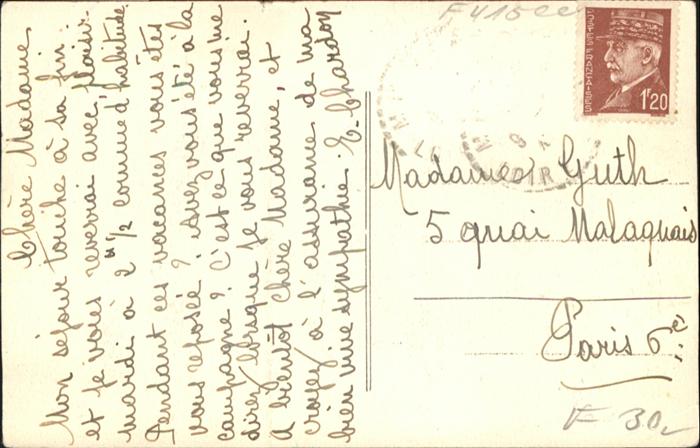 Chère Madame
Mon séjour touche à sa fin
et je vous reverrai avec plaisir
mardi à 2h 1/2 comme d'habitude.
Pendant ces vacances vous êtes
vous reposée ? avez vous été à la
campagne ? C'est ce que vous me
direz lorsque je vous reverrai.
A bientôt Chère Madame, et
croyez à l'assurance de ma
bien vive sympathie. E. Chardon
F415
POSTES FRANÇAISES
1F20
Madame Guth
5 quai Malaquais
Paris 6e
F 30